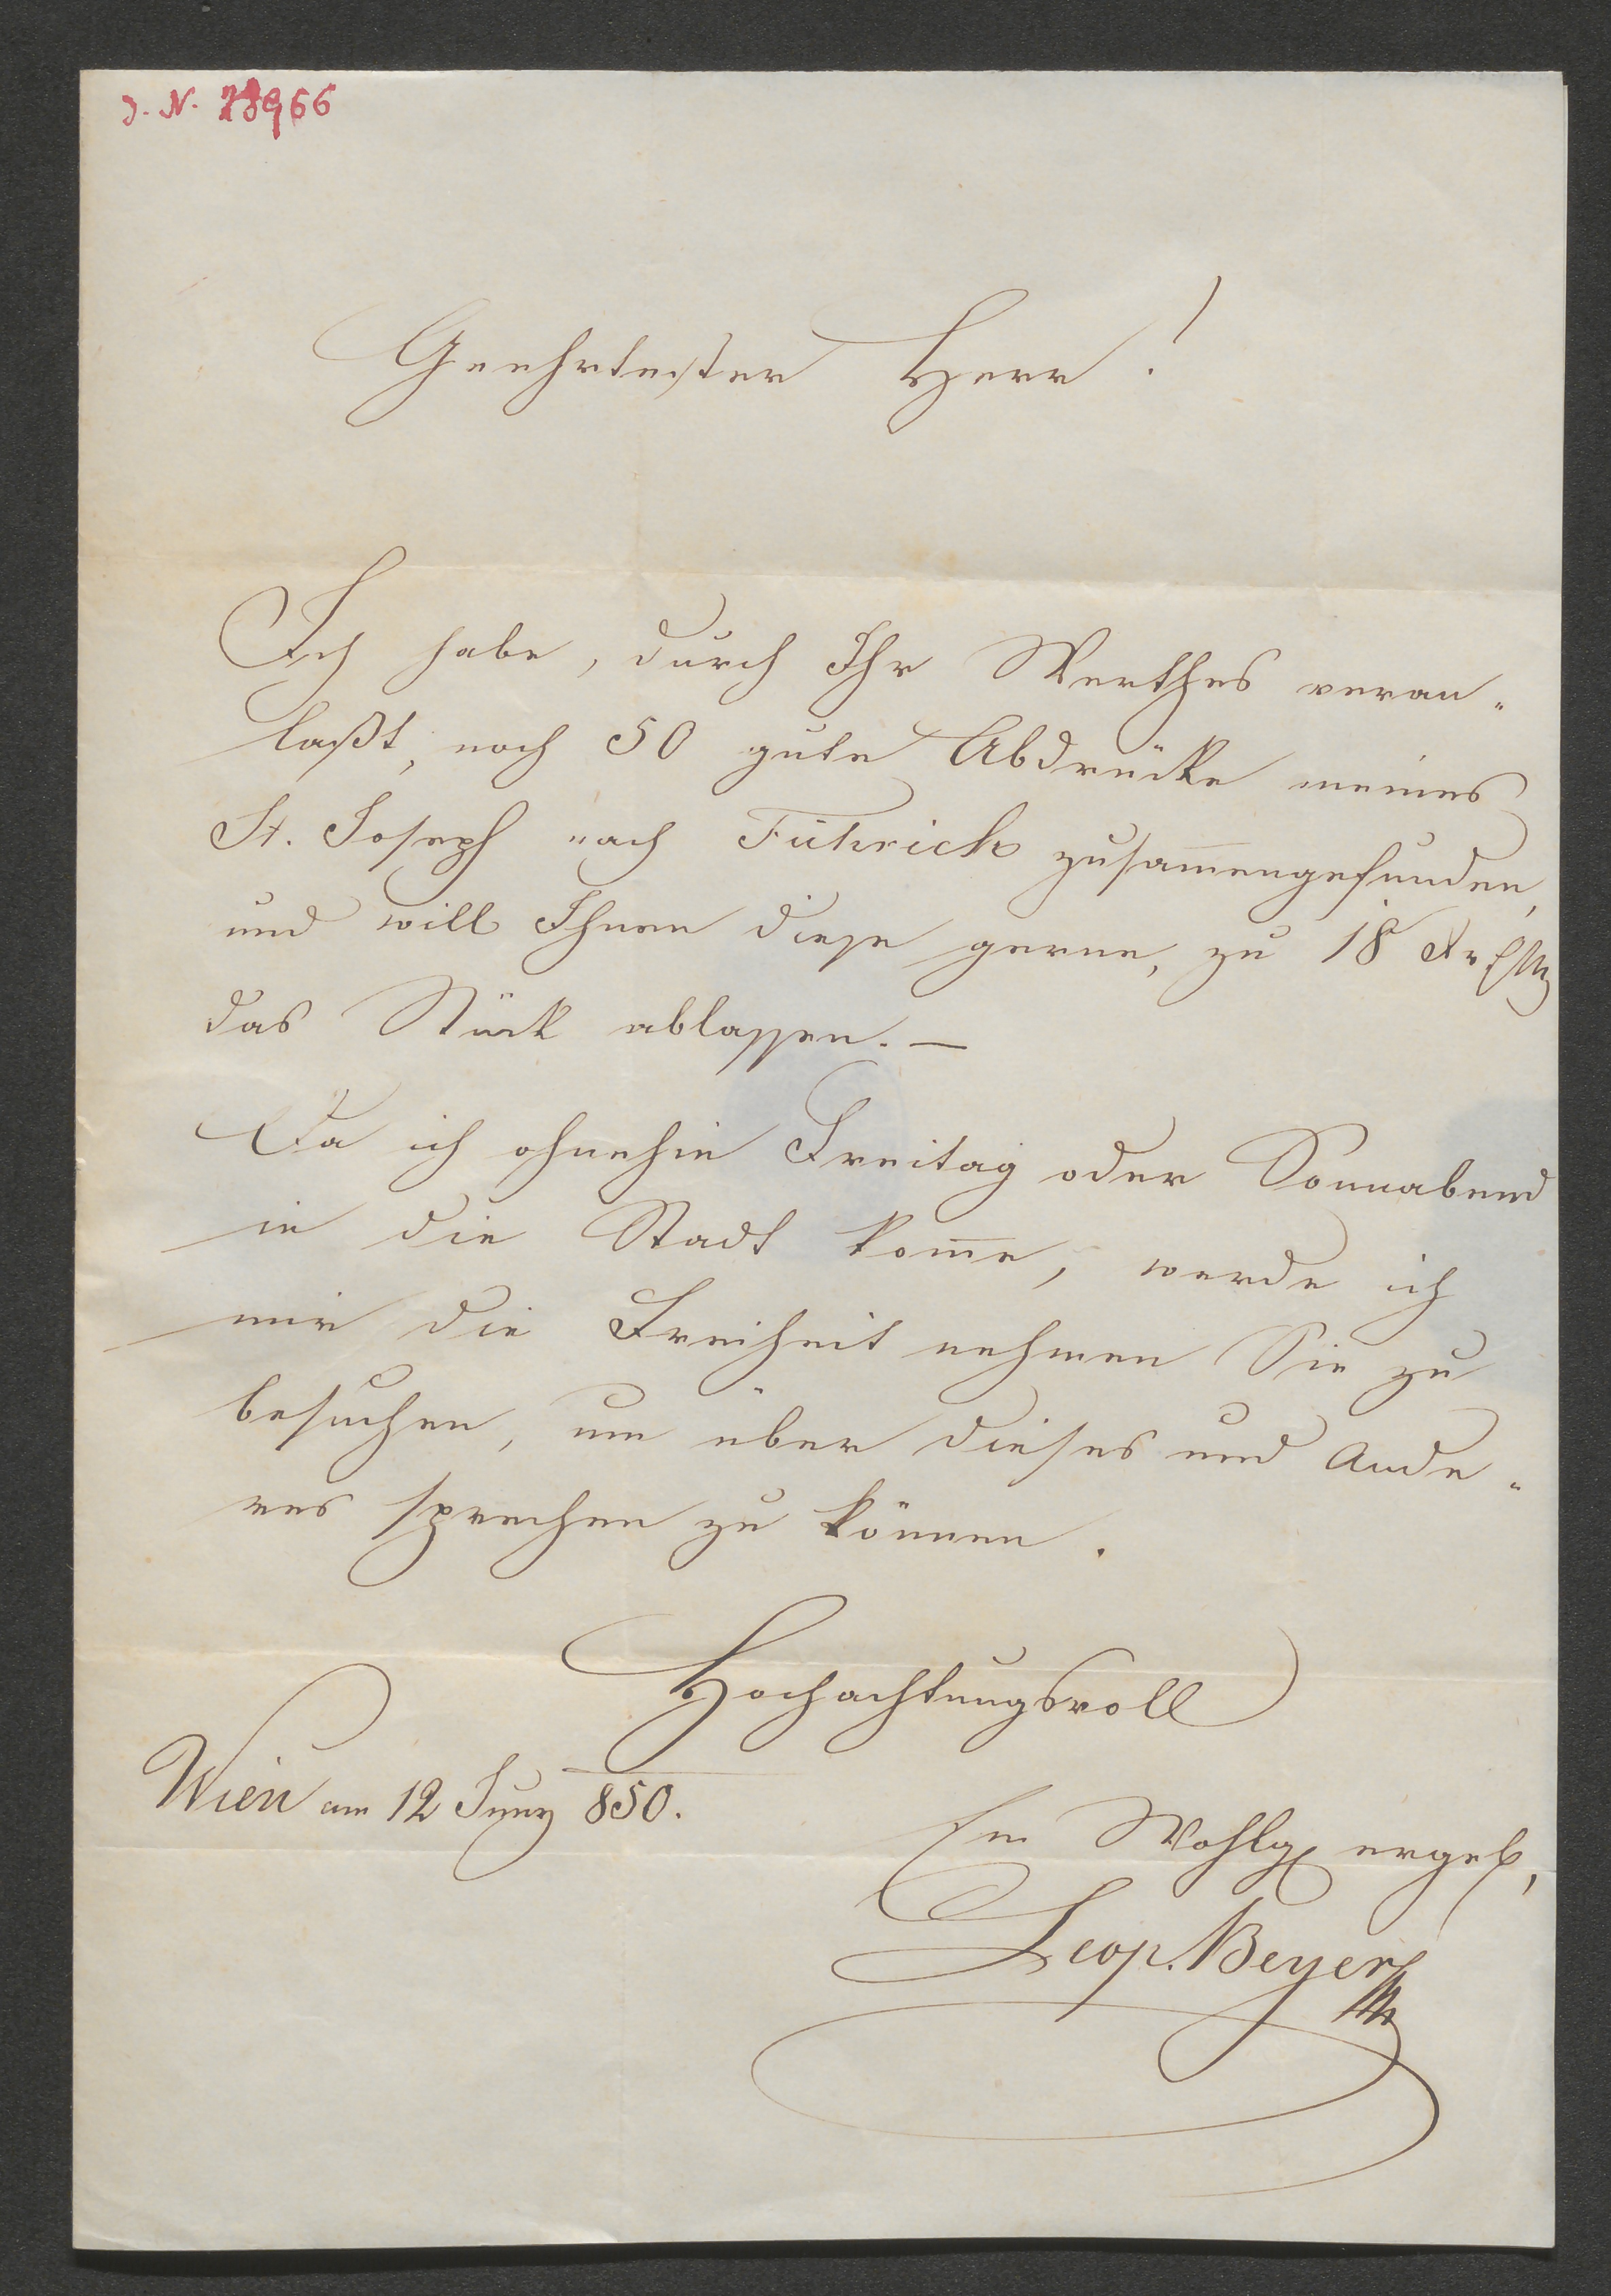 J. N. 78966
Geehrtester Herr!
Ich habe, durch Ihr Werthes veran„
laßt, noch 50 gute Abdrücke meines
St. Joseph nach Führich zusam̅engefunden,
und will Ihnen diese gerne, zu 18 Xr CMz
das Stück ablassen. —
Da ich ohnehin Freitag oder Sonnabend
in die Stadt kom̅e, werde ich
mir die Freiheit nehmen Sie zu
besuchen, um über dieses und Ande„
res sprechen zu können.
Hochachtungsvoll
Wien am 12 Juny 850.
Eu Wohlg ergeb,
Leop. Beyer